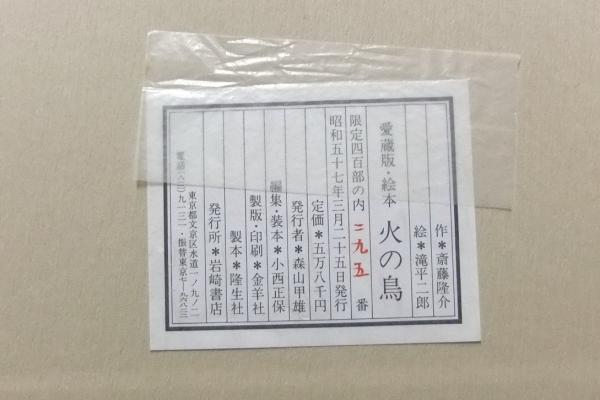 作＊斎藤隆介
絵＊滝平二郎
愛蔵版・絵本 火の鳥
限定四百部の内 二九五 番
昭和五十七年三月二十五日発行
定価＊五万八千円
発行者＊森山甲雄
編集・装本＊小西正保
製版・印刷＊金羊社
製本＊隆生社
発行所＊岩崎書店
東京都文京区水道一ノ九ノ二
電話(八一二)九一三一・振替東京七ー九六八二二